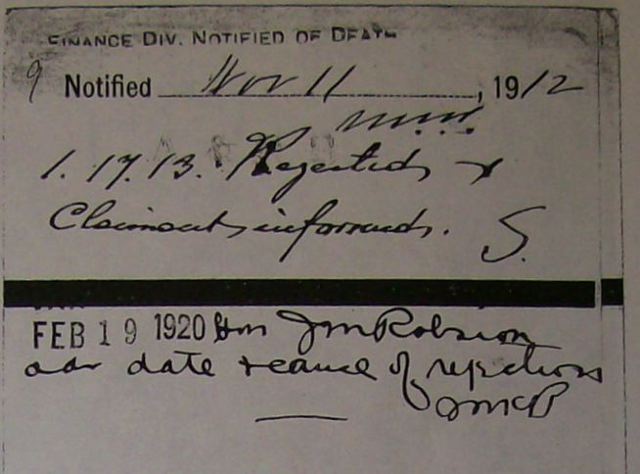 FINANCE DIV. NOTIFIED OF DEATH
9 Notified Nov 11, 1912
1. 17. 13. Rejected &
Claimant informed. S.
FEB 19 1920 Hon J M Robsion
adv date & cause of rejection
JMcB